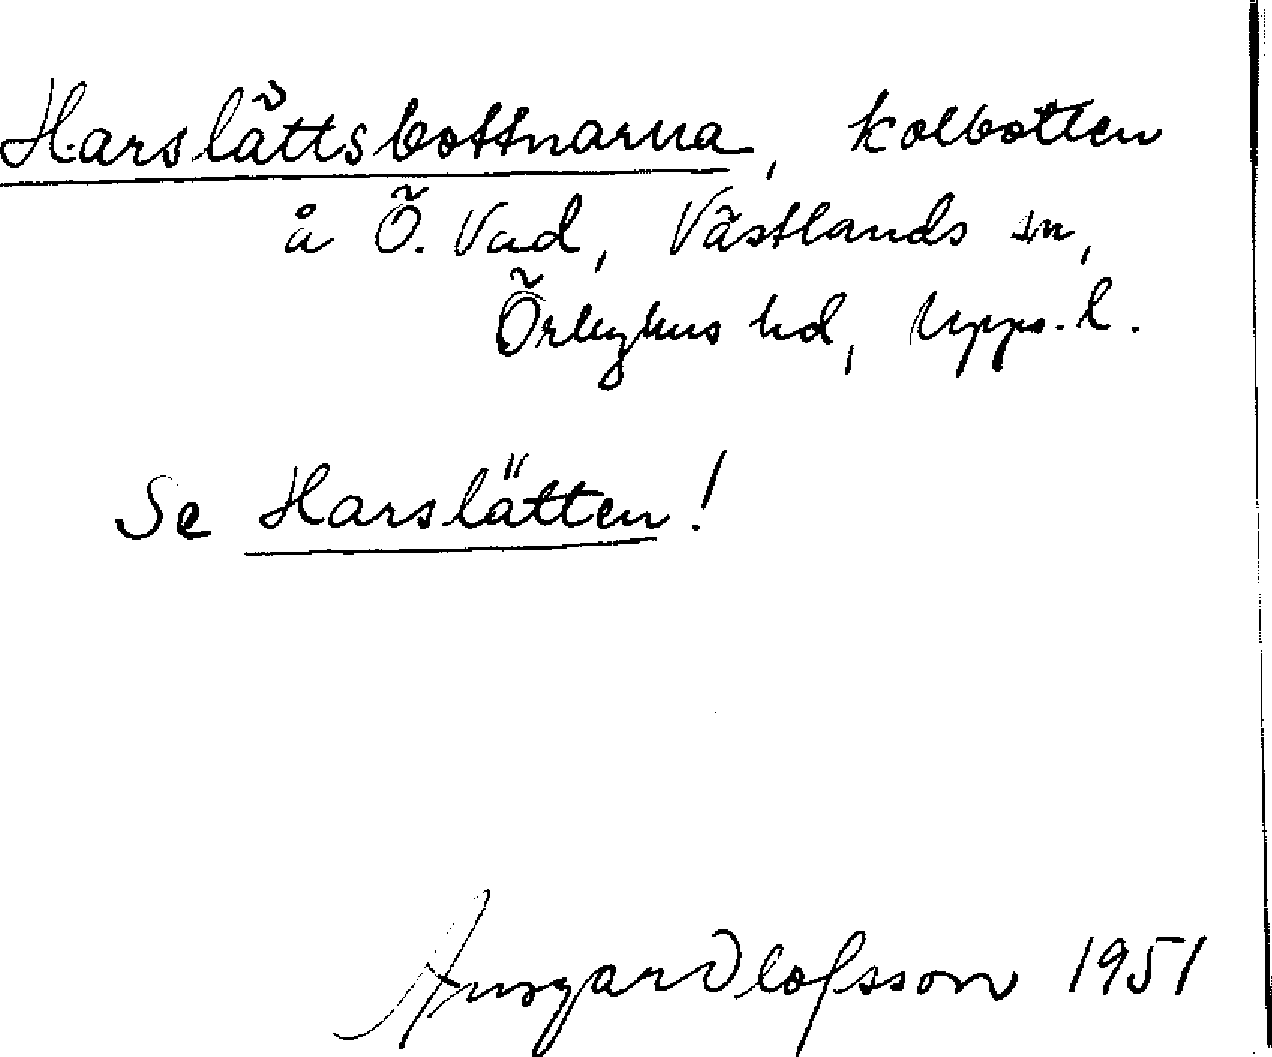 Harslättsbottnarna, kolbotten
å Ö. Vad, Västlands sn,
Örbyhus hd, Upps. l.
Se Harslätten!
Ansgar Olofsson 1951